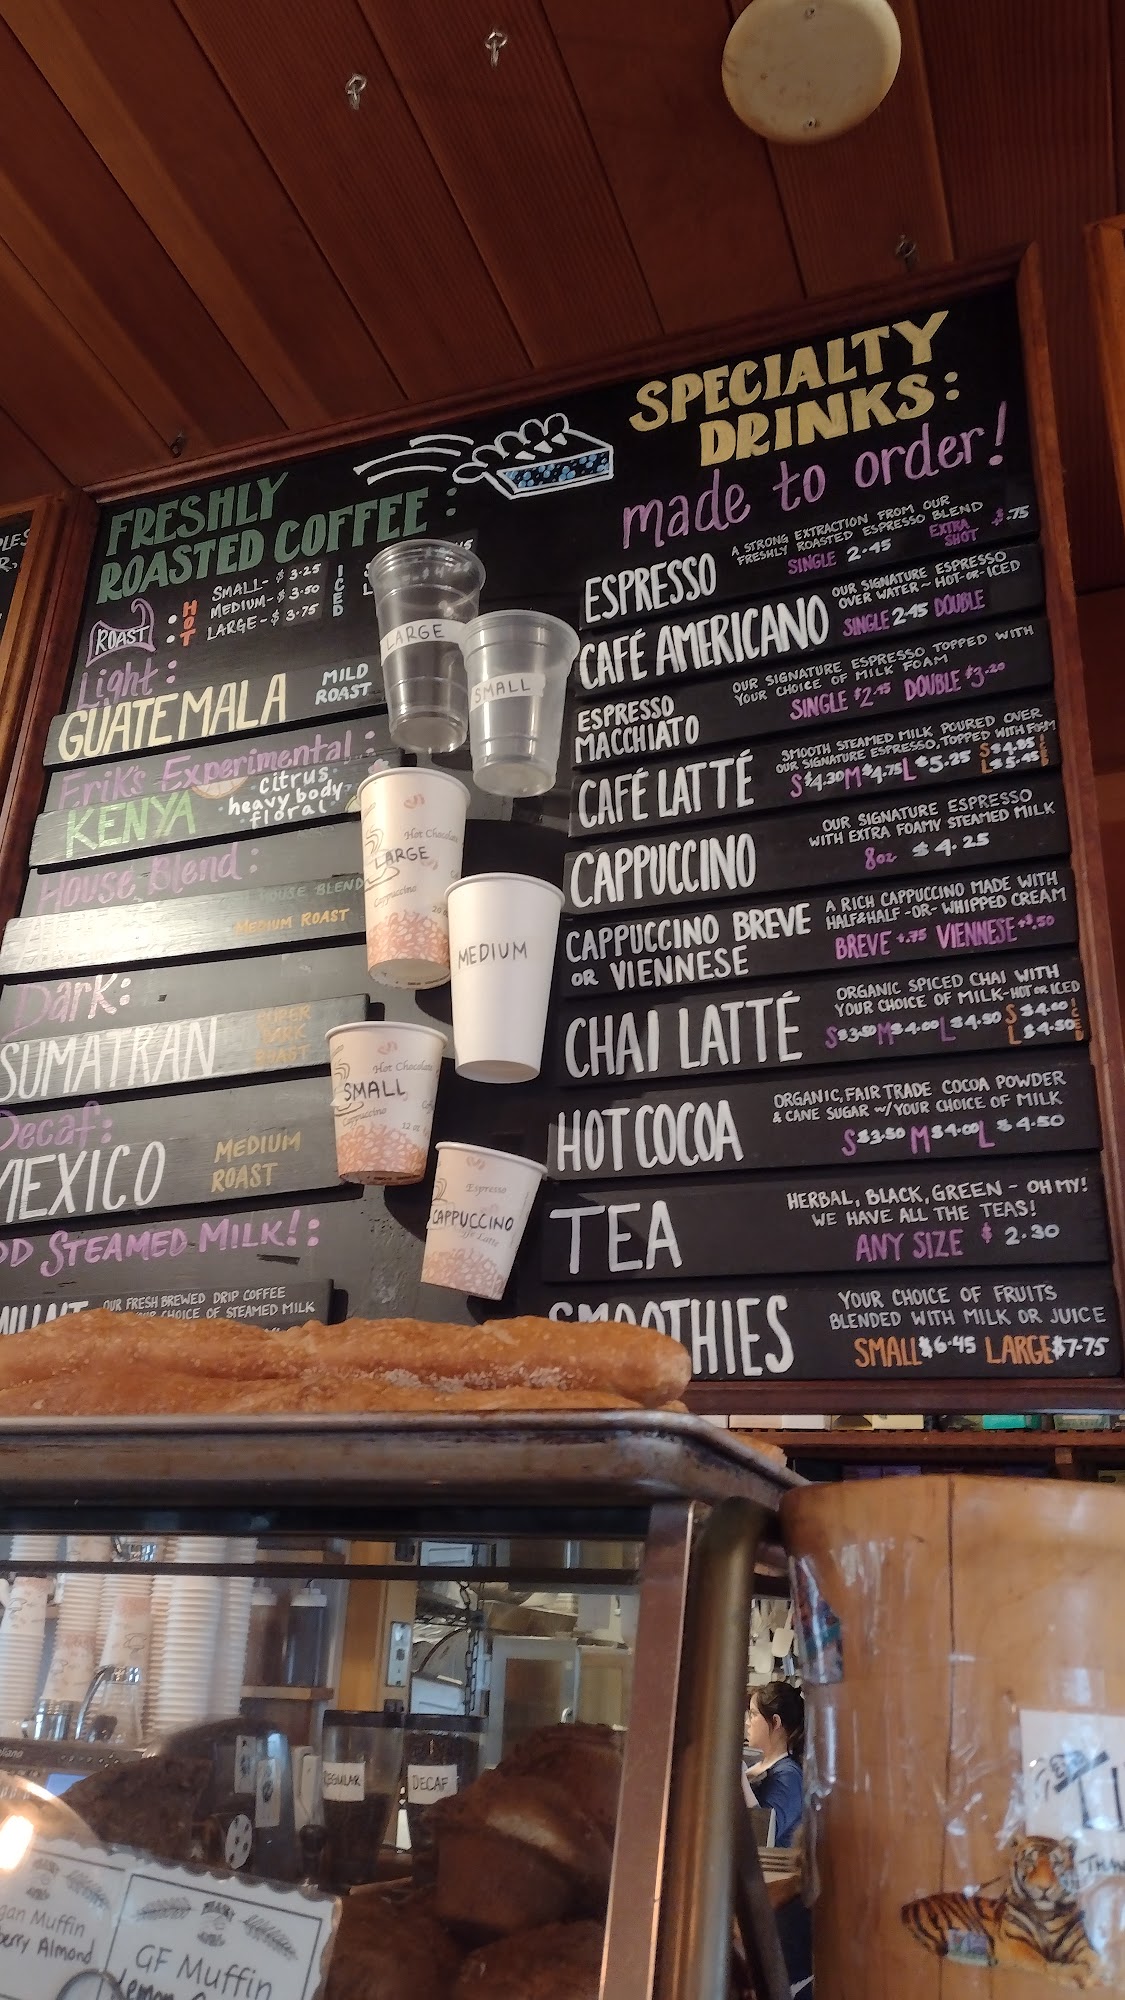 FRESHLY
ROASTED COFFEE:
HOT
SMALL- $3.25
MEDIUM- $3.50
LARGE- $3.75
ICED
ROAST:
Light:
GUATEMALA
MILD
ROAST
Erik's Experimental:
KENYA
citrus
heavy body
floral
House Blend:
HOUSE BLEND
MEDIUM ROAST
Dark:
SUMATRAN
SUPER
DARK
ROAST
Decaf:
MEXICO
MEDIUM
ROAST
STEAMED MILK!:
OUR FRESH BREWED DRIP COFFEE
CHOICE OF STEAMED MILK
LARGE
SMALL
Hot Chocolate
LARGE
Cappuccino
MEDIUM
Hot Chocolate
SMALL
Cappuccino
12 oz
Espresso
CAPPUCCINO
Caffe Latte
SPECIALTY
DRINKS:
made to order!
ESPRESSO
A STRONG EXTRACTION FROM OUR
FRESHLY ROASTED ESPRESSO BLEND
SINGLE 2.45
EXTRA
SHOT
$.75
CAFÉ AMERICANO
OUR SIGNATURE ESPRESSO
OVER WATER~ HOT-OR-ICED
SINGLE 2.45 DOUBLE
ESPRESSO
MACCHIATO
OUR SIGNATURE ESPRESSO TOPPED WITH
YOUR CHOICE OF MILK FOAM
SINGLE $2.75 DOUBLE $3.20
CAFÉ LATTÉ
SMOOTH STEAMED MILK POURED OVER
OUR SIGNATURE ESPRESSO, TOPPED WITH FOAM
S $4.30 M $4.75 L $5.25
S $4.95
L $5.45
ICED
CAPPUCCINO
OUR SIGNATURE ESPRESSO
WITH EXTRA FOAMY STEAMED MILK
8oz $4.25
CAPPUCCINO BREVE
OR VIENNESE
A RICH CAPPUCCINO MADE WITH
HALF&HALF -OR- WHIPPED CREAM
BREVE +.75 VIENNESE +$.50
CHAI LATTÉ
ORGANIC SPICED CHAI WITH
YOUR CHOICE OF MILK-HOT OR ICED
S $3.50 M $4.00 L $4.50
S $4.00
L $4.50
ICED
HOT COCOA
ORGANIC, FAIR TRADE COCOA POWDER
& CANE SUGAR ~/YOUR CHOICE OF MILK
S $3.50 M $4.00 L $4.50
TEA
HERBAL, BLACK, GREEN - OH MY!
WE HAVE ALL THE TEAS!
ANY SIZE $2.30
SMOOTHIES
YOUR CHOICE OF FRUITS
BLENDED WITH MILK OR JUICE
SMALL $6.45 LARGE $7.75
REGULAR
DECAF
Muffin
Almond
GF Muffin